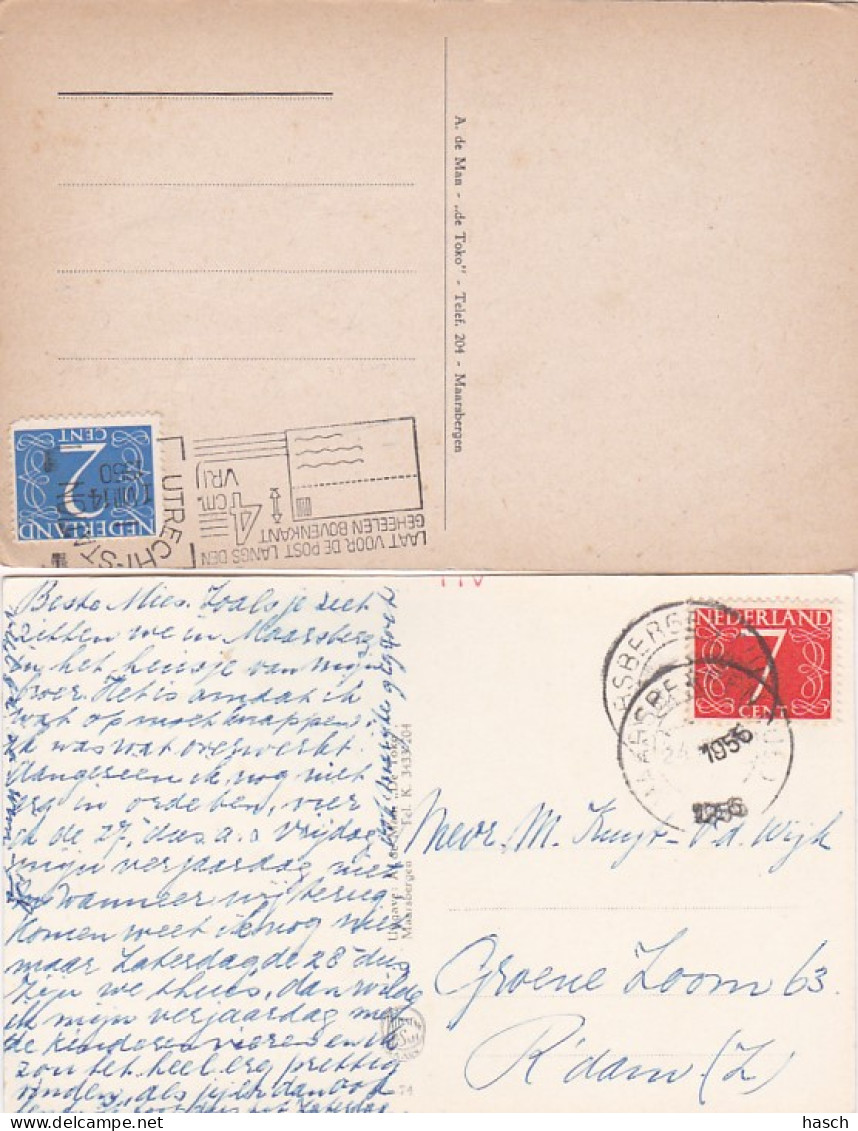 A. de Man - „de Toko” - Telef. 204 - Maarsbergen
NEDERLAND
2
CENT
UTRECHT-STATION
1950
LAAT VOOR DE POST LANGS DEN
GEHEELEN BOVENKANT
4 CM.
VRIJ
Beste Mies. Zoals je ziet
zitten we in Maarsberg
in het huisje van mijn
broer. Het is omdat ik
wat op moet knappen.
ik was wat overwerkt.
Aangezien ik nog niet
erg in orde ben, vier
ik de 27, dus a.s. Vrijdag
mijn verjaardag niet
wanneer wij terug
komen weet ik nog niet
maar Zaterdag de 28 dus
zijn we thuis, dan wilde
ik mijn verjaardag met
de kinderen vieren en ik
zou het heel erg prettig
vinden, als jij er dan ook
Uitgave: A. de Man „De Toko”
Maarsbergen Tel. K. 3433-204
NEDERLAND
7
CENT
MAARSBERGEN
1956
1956
Mevr. M. Kuyr - v.d. Wijk
Groene Zoom 63.
R'dam (Z)
74
hasch